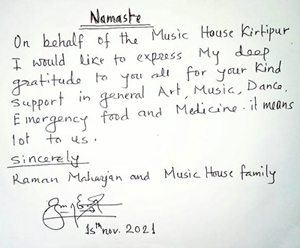 Namaste
On behalf of the Music House Kirtipur
I would like to express My deep
gratitude to you all for your kind
Support in general Art, Music, Dance,
Emergency food and Medicine. it means
lot to us.
Sincerely
Raman Maharjan and Music House family
15th nov. 2021